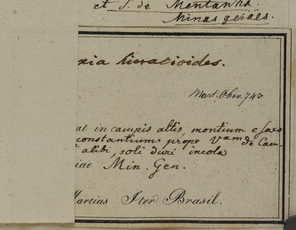 et S. de Montanha.
Minas geraës.
xia hieracioides.
Mart. Obs. 743
at in campis altis, montium e saxo
constantium prope Vam de Cam
alibi, soli duri incola
iae Min. Gen.
Martius Iter Brasil.